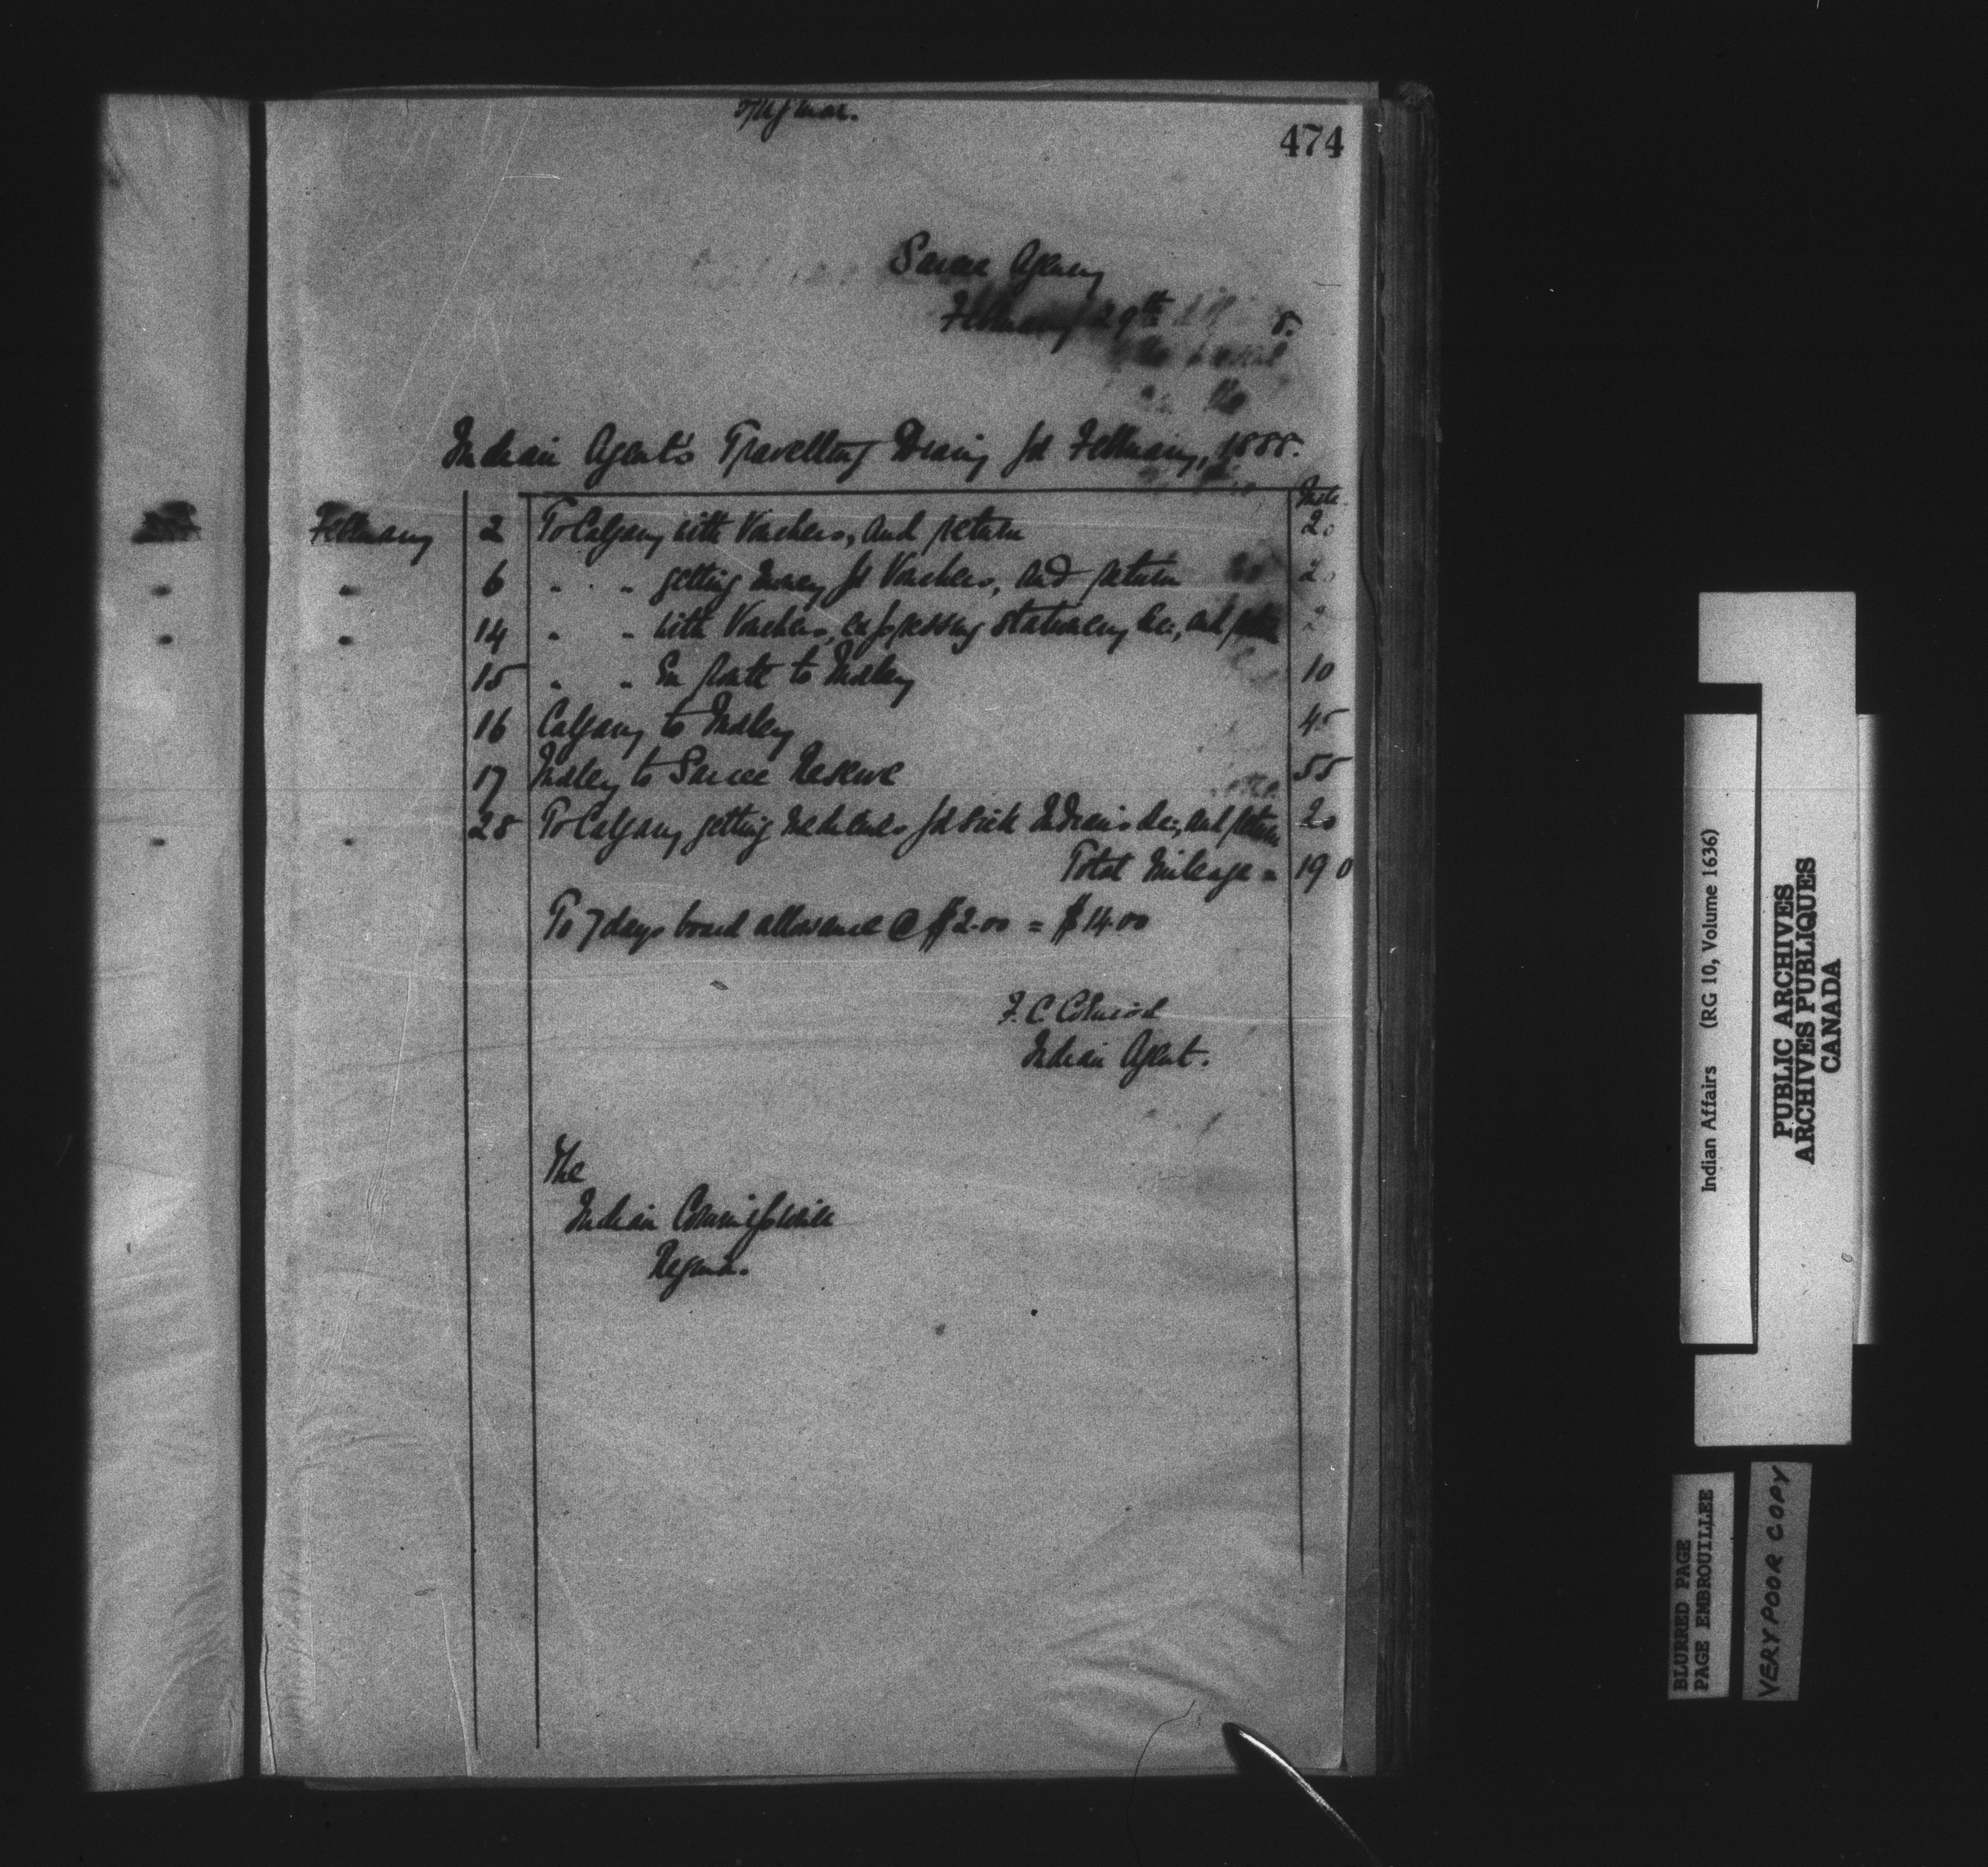 474
Sarcee Agency
February 29th
Indian Agent's Travelling Diary for February, 1888.
Mile.
February 2 To Calgary with Vouchers, and return 20
" 6 " " getting money for Vouchers, and return 20
" 14 " " with Vouchers, expressing stationery &c., and return 2
15 " " En route to Morley 10
16 Calgary to Morley 45
17 Morley to Sarcee Reserve 55
" 28 To Calgary getting medicines for sick Indians &c, and return 20
Total Mileage = 190
To 7 days board allowance @ $2.00 = $14.00
F. C. Cornish
Indian Agent.
The
Indian Commissioner
Regina.
Indian Affairs (RG 10, Volume 1636)
PUBLIC ARCHIVES
ARCHIVES PUBLIQUES
CANADA
BLURRED PAGE
PAGE EMBROUILLEE
VERY POOR COPY